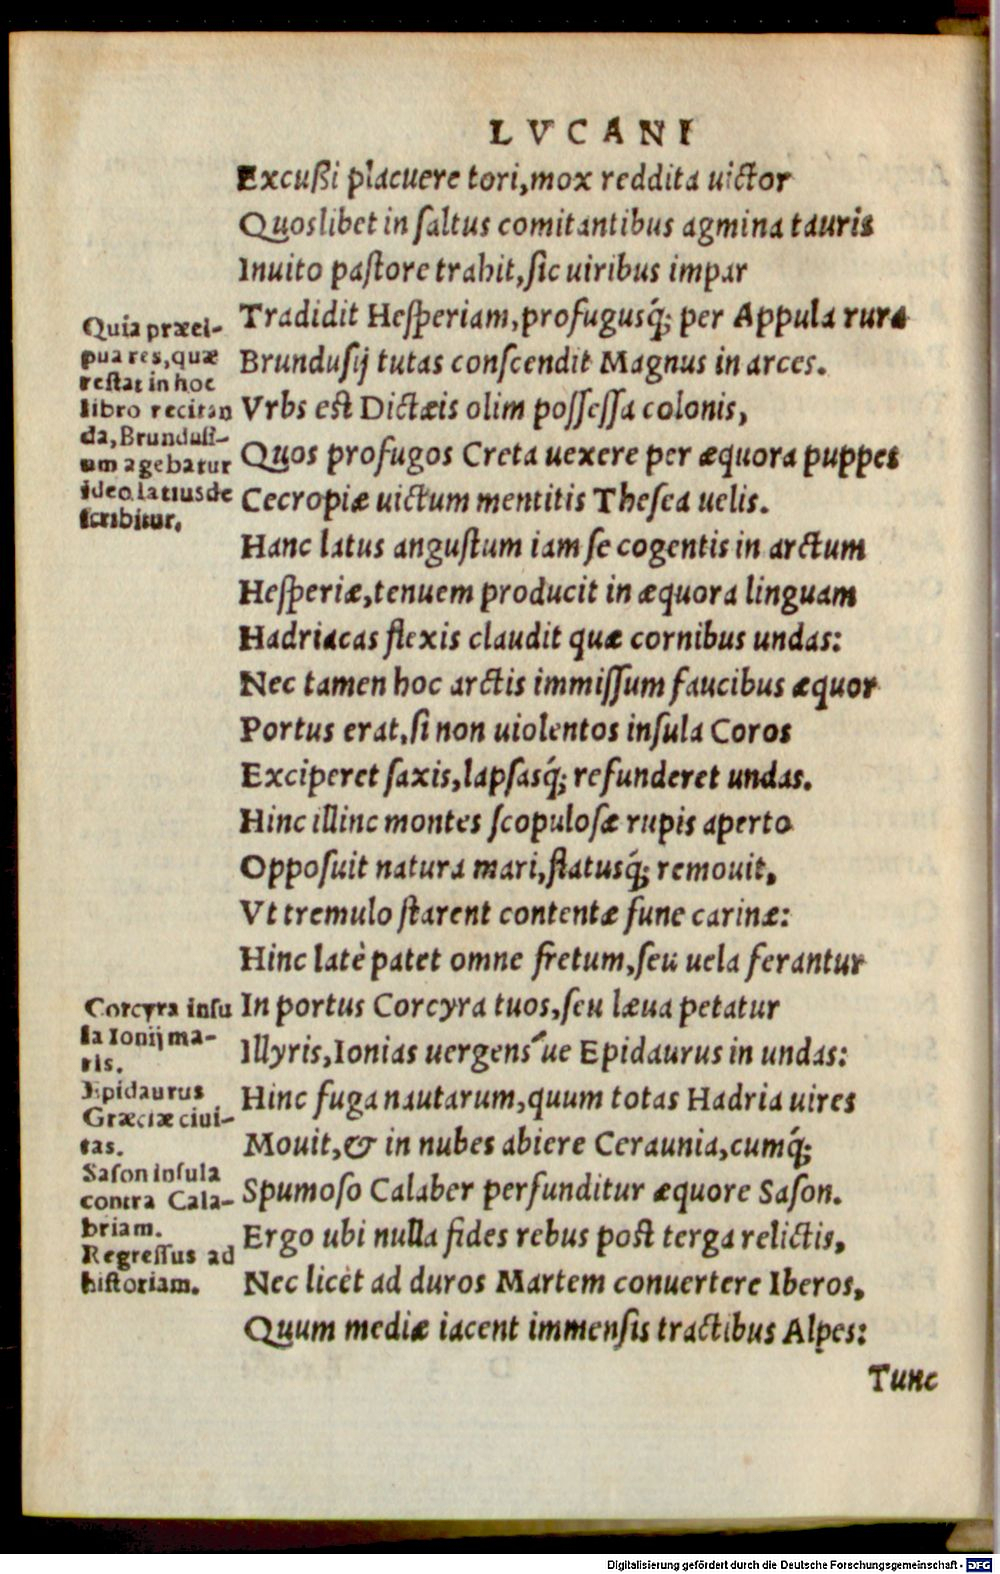 LVCANI
Excußi placuere tori, mox reddita uictor
Quoslibet in ſaltus comitantibus agmina tauris
Inuito paſtore trahit, ſic uiribus impar
Tradidit Heſperiam, profugusq́; per Appula rura
Brunduſij tutas conſcendit Magnus in arces.
Vrbs eſt Dictæis olim poſſeſſa colonis,
Quos profugos Creta uexere per æquora puppes
Cecropiæ uictum mentitis Theſea uelis.
Hanc latus anguſtum iam ſe cogentis in arctum
Heſperiæ, tenuem producit in æquora linguam
Hadriacas flexis claudit quæ cornibus undas:
Nec tamen hoc arctis immiſſum faucibus æquor
Portus erat, ſi non uiolentos inſula Coros
Exciperet ſaxis, lapſasq́; refunderet undas.
Hinc illinc montes ſcopuloſæ rupis aperto
Oppoſuit natura mari, flatusq́; remouit,
Vt tremulo ſtarent contentæ fune carinæ:
Hinc latè patet omne fretum, ſeu uela ferantur
In portus Corcyra tuos, ſeu læua petatur
Illyris, Ionias uergens ́ue Epidaurus in undas:
Hinc fuga nautarum, quum totas Hadria uires
Mouit, & in nubes abiere Ceraunia, cumq́;
Spumoſo Calaber perfunditur æquore Saſon.
Ergo ubi nulla fides rebus poſt terga relictis,
Nec licet ad duros Martem conuertere Iberos,
Quum mediæ iacent immenſis tractibus Alpes:
Tunc
Quia præci-
pua res, quæ
reſtat in hoc
libro recitan
da, Brunduſi-
um agebatur
ideo latius de
ſcribitur.
Corcyra inſu
la Ionij ma-
ris.
Epidaurus
Græciæ ciui-
tas.
Saſon inſula
contra Cala-
briam.
Regreſſus ad
hiſtoriam.
Digitalisierung gefördert durch die Deutsche Forschungsgemeinschaft - DFG